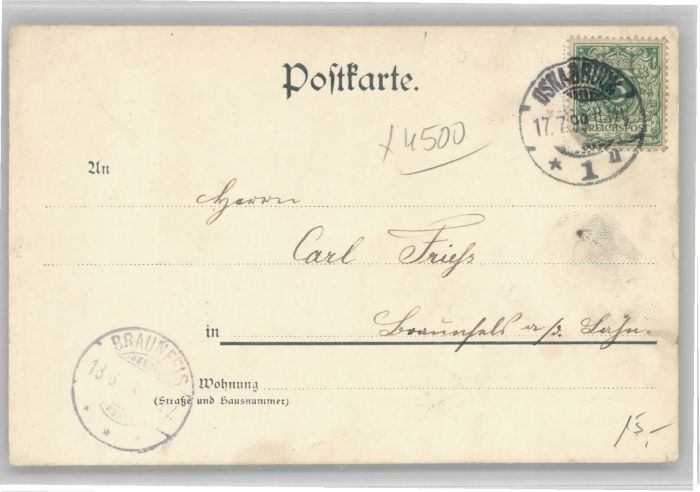 Postkarte.
OSNABRÜCK
17.7.99
* 1 n
REICHSPOST
x4500
An
Herrn
Carl Friess
in Braunfels a/d. Lahn.
BRAUNFELS
Wohnung
(Straße und Hausnummer)
15,-